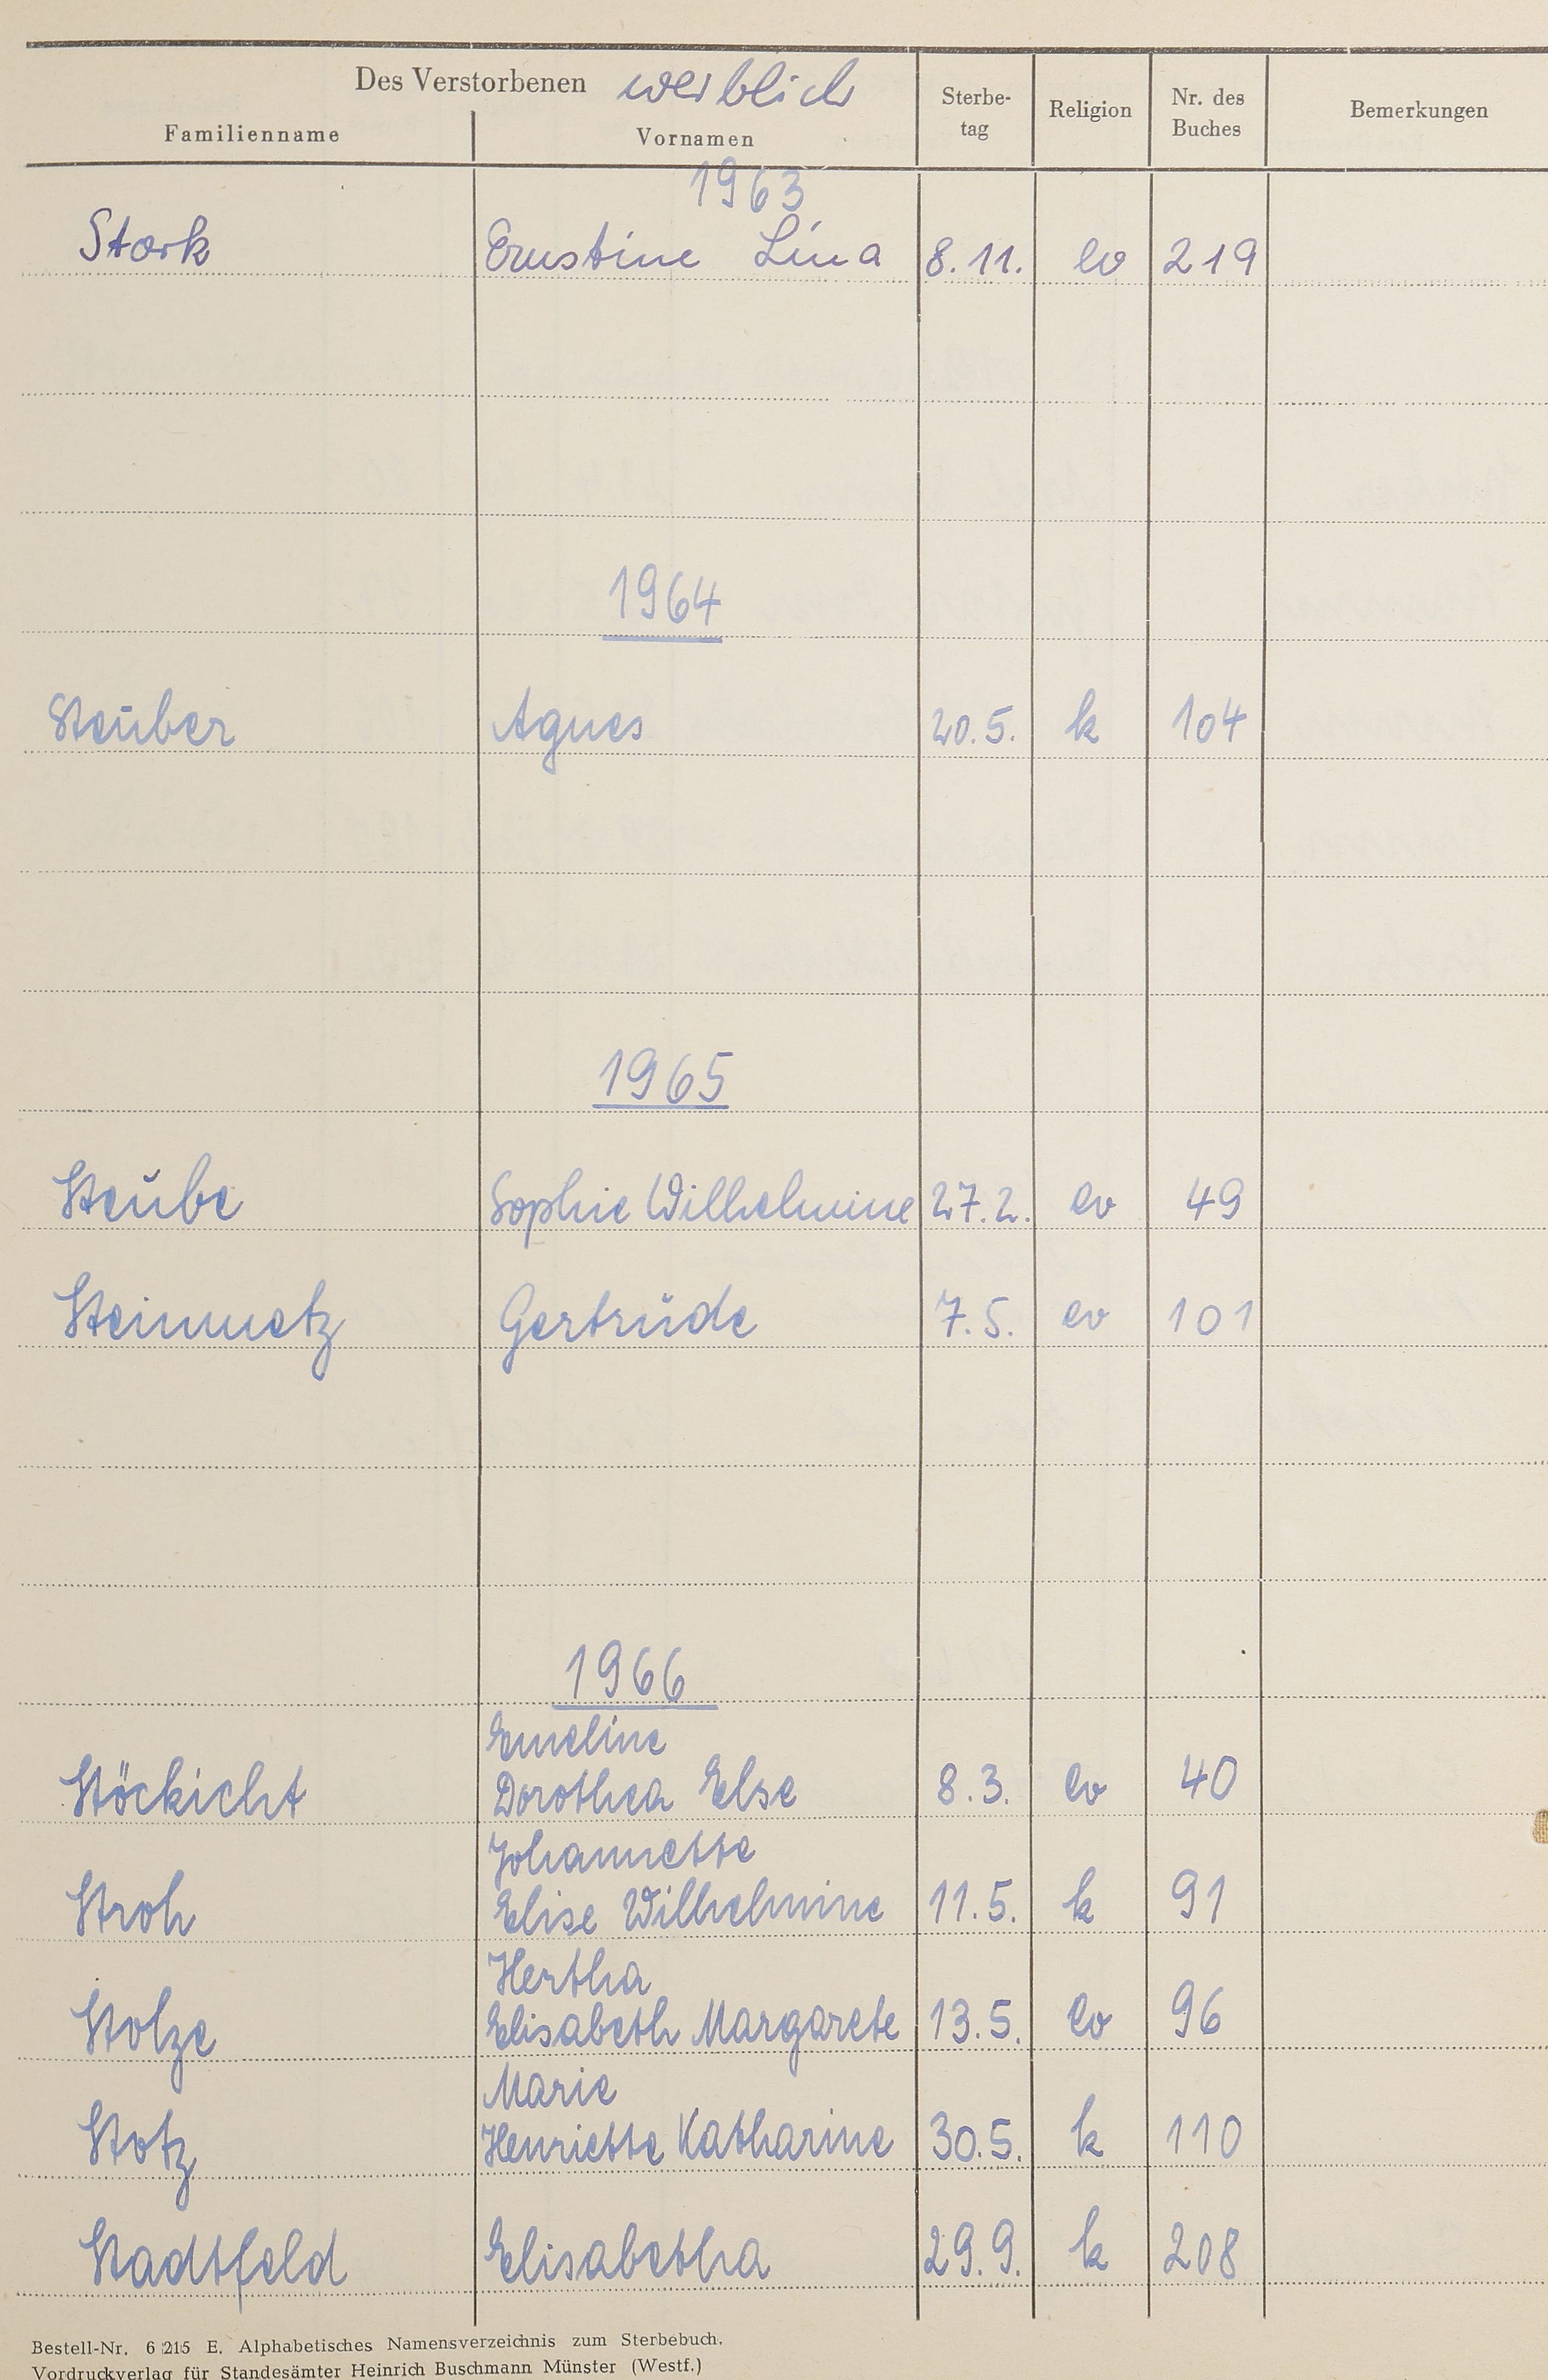 Des Verstorbenen weiblich
Familienname Vornamen Sterbe-tag Religion Nr. des Buches Bemerkungen
1963
Stark Ernstine Lina 8.11. ev 219
1964
Steuber Agnes 20.5. k 104
1965
Steube Sophie Wilhelmine 27.2. ev 49
Steinmetz Gertrude 7.5. ev 101
1966
Emeline
Stöckicht Dorothea Else 8.3. ev 40
Johannette
Stroh Elise Wilhelmine 11.5. k 91
Hertha
Stolze Elisabeth Margarete 13.5. ev 96
Marie
Stotz Henriette Katharine 30.5. k 110
Stadtfeld Elisabetha 29.9. k 208
Bestell-Nr. 6 215 E. Alphabetisches Namensverzeichnis zum Sterbebuch.
Vordruckverlag für Standesämter Heinrich Buschmann Münster (Westf.)